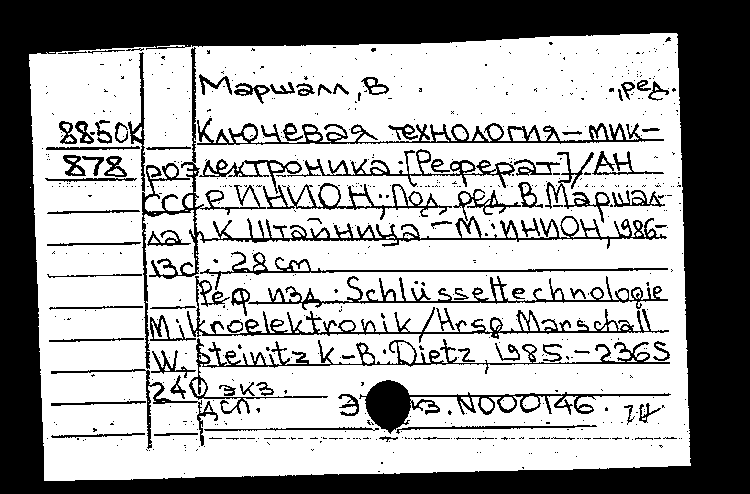 Маршалл, В ., ред.
88-50К Ключевая технология – мик-
878 роэлектроника : [Реферат] / АН
СССР, ИНИОН ; Под ред. В. Маршал-
ла и К. Штайница. – М. : ИНИОН, 1986.-
13с. ; 28 cm.
Реф. изд. : Schlüsseltechnologie
Mikroelektronik / Hrsg. Marschall
W., Steinitz K. – B. : Dietz, 1985. – 236S
240 экз.
ДСП. Экз. N000146.